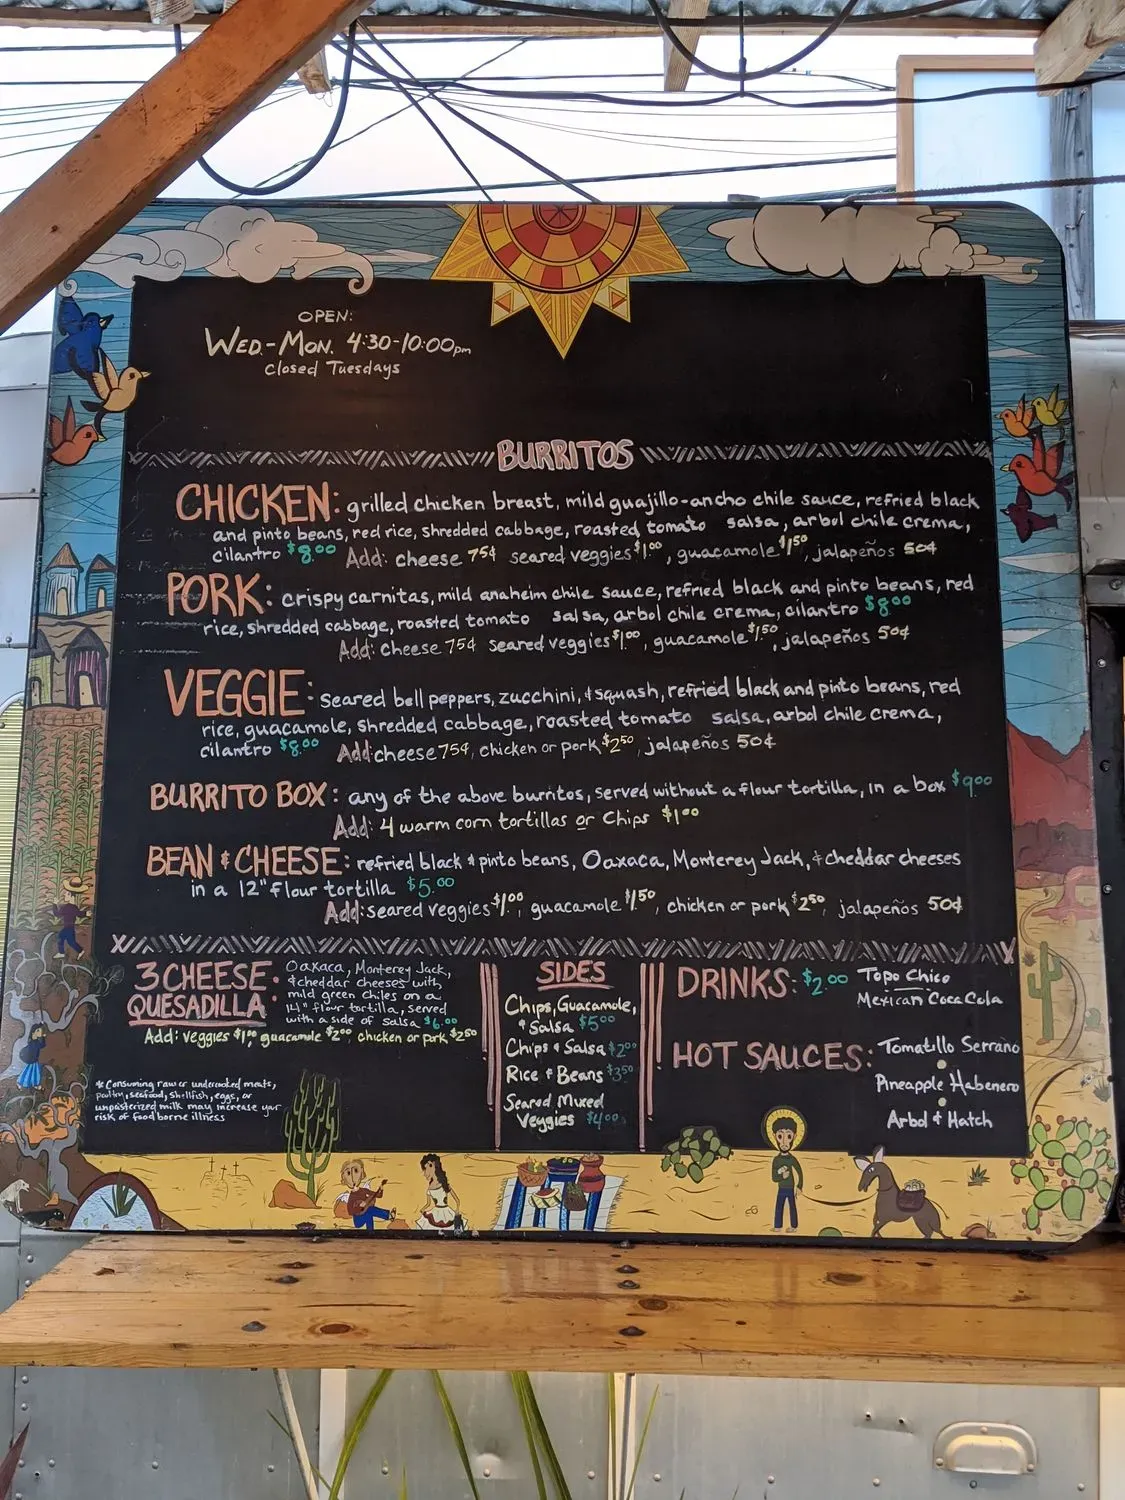 OPEN:
WED.-MON. 4:30-10:00pm
Closed Tuesdays
BURRITOS
CHICKEN: grilled chicken breast, mild guajillo-ancho chile sauce, refried black
and pinto beans, red rice, shredded cabbage, roasted tomato salsa, arbol chile crema,
cilantro $8.00 Add: cheese 75¢ seared veggies $1.00, guacamole $1.50, jalapeños 50¢
PORK: crispy carnitas, mild anaheim chile sauce, refried black and pinto beans, red
rice, shredded cabbage, roasted tomato salsa, arbol chile crema, cilantro $8.00
Add: cheese 75¢ seared veggies $1.00, guacamole $1.50, jalapeños 50¢
VEGGIE: seared bell peppers, zucchini, & squash, refried black and pinto beans, red
rice, guacamole, shredded cabbage, roasted tomato salsa, arbol chile crema,
cilantro $8.00 Add: cheese 75¢, chicken or pork $2.50, jalapeños 50¢
BURRITO BOX: any of the above burritos, served without a flour tortilla, in a box $9.00
Add: 4 warm corn tortillas or Chips $1.00
BEAN & CHEESE: refried black & pinto beans, Oaxaca, Monterey Jack, & cheddar cheeses
in a 12" flour tortilla $5.00
Add: seared veggies $1.00, guacamole $1.50, chicken or pork $2.50, jalapeños 50¢
3 CHEESE
QUESADILLA:
Oaxaca, Monterey Jack,
& cheddar cheeses with
mild green chiles on a
14" flour tortilla, served
with a side of salsa $6.00
Add: veggies $1.00, guacamole $2.00, chicken or pork $2.50
* Consuming raw or undercooked meats,
poultry, seafood, shellfish, eggs, or
unpasterized milk may increase your
risk of food borne illness
SIDES
Chips, Guacamole,
& Salsa $5.00
Chips & Salsa $2.00
Rice & Beans $3.50
Seared Mixed
Veggies $4.00
DRINKS: $2.00 Topo Chico
Mexican Coca Cola
HOT SAUCES: Tomatillo Serrano
Pineapple Habenero
Arbol & Hatch